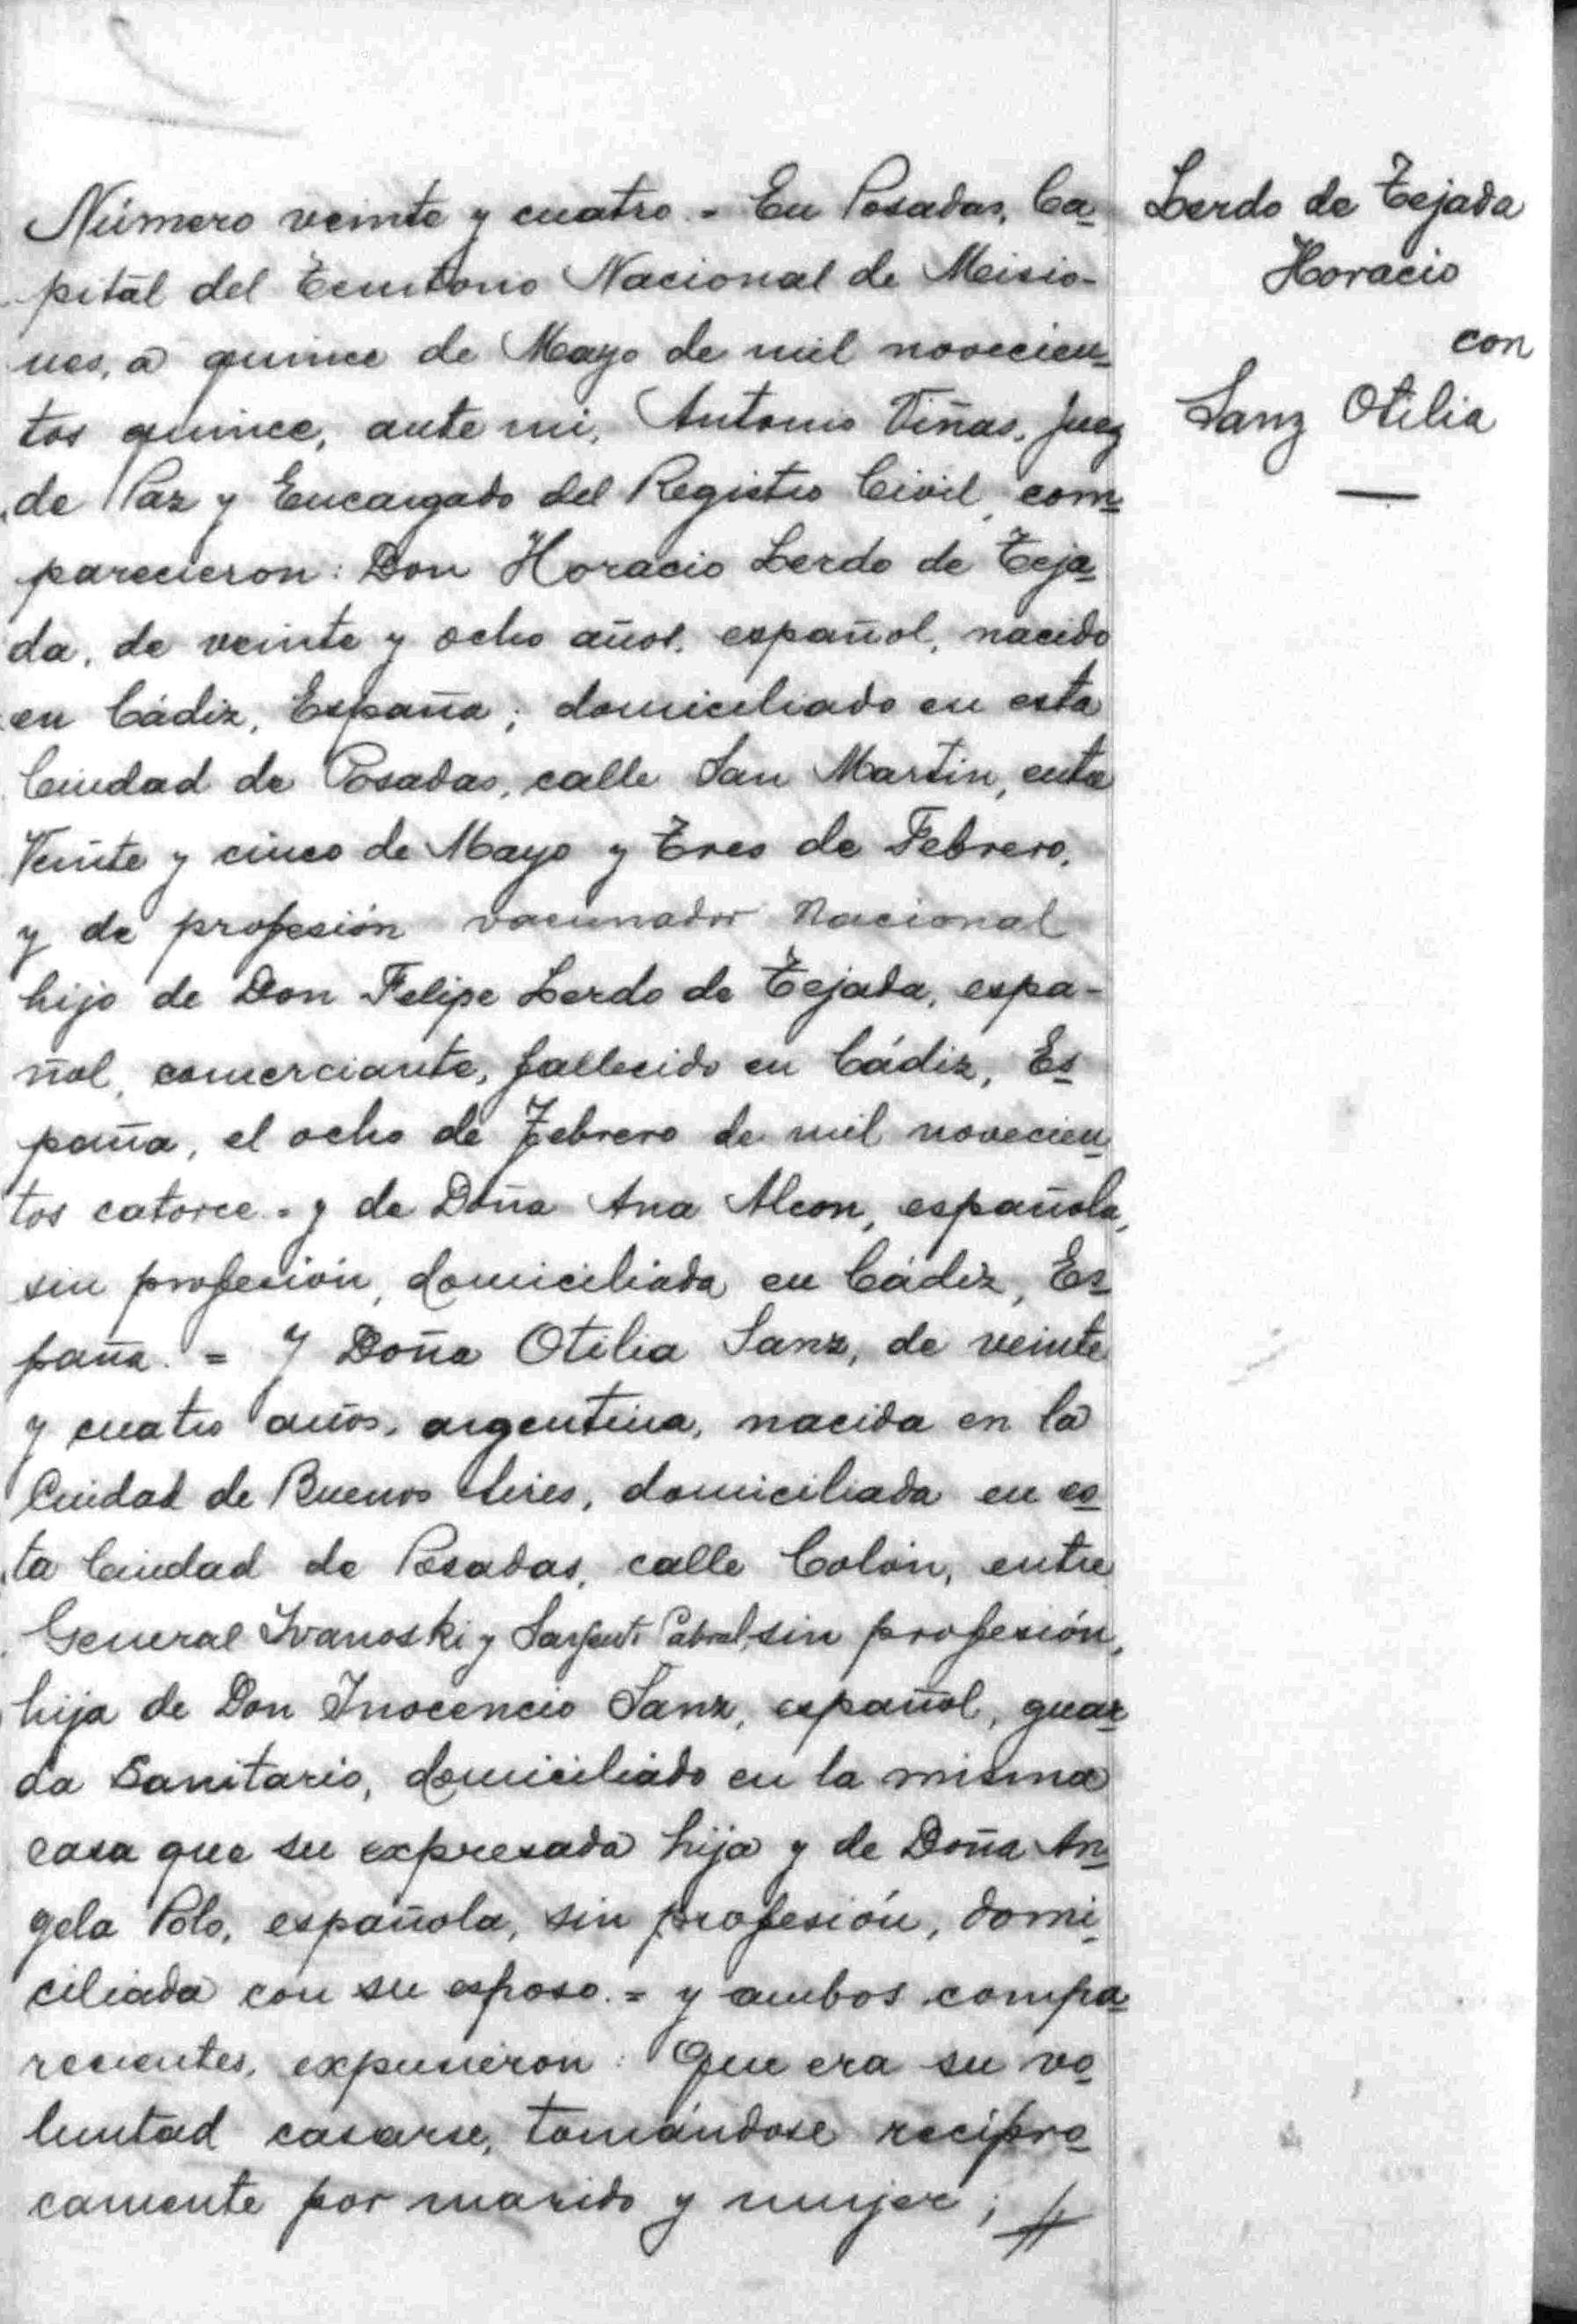 Número veinte y cuatro. = En Posadas, Ca=
pital del Territorio Nacional de Misio-
nes, a quince de Mayo de mil novecien=
tos quince, ante mi, Antonio Viñas, Juez
de Paz y Encargado del Registro Civil, com=
parecieron: Don Horacio Lerdo de Teja=
da, de veinte y ocho años, español, nacido
en Cádiz, España; domiciliado en esta
Ciudad de Posadas, calle San Martin, entre
Veinte y cinco de Mayo y Tres de Febrero,
y de profesión vacunador Nacional
hijo de Don Felipe Lerdo de Tejada, espa-
ñol, comerciante, fallecido en Cádiz, Es=
paña, el ocho de Febrero de mil novecien=
tos catorce = y de Doña Ana Alcon, española,
sin profesión, domiciliada en Cádiz, Es=
paña. = Y Doña Otilia Sanz, de veinte
y cuatro años, argentina, nacida en la
Ciudad de Buenos Aires, domiciliada en es=
ta Ciudad de Posadas, calle Colón, entre
General Ivanoski y Sargento Cabral, sin profesión,
hija de Don Inocencio Sanz, español, guar=
da Sanitario, domiciliado en la misma
casa que su expresada hija y de Doña An=
gela Polo, española, sin profesión, domi=
ciliada con su esposo. = y ambos compa=
recientes, expusieron: Que era su vo=
luntad casarse, tomándose recípro=
camente por marido y mujer; //
Lerdo de Tejada
Horacio
con
Sanz Otilia